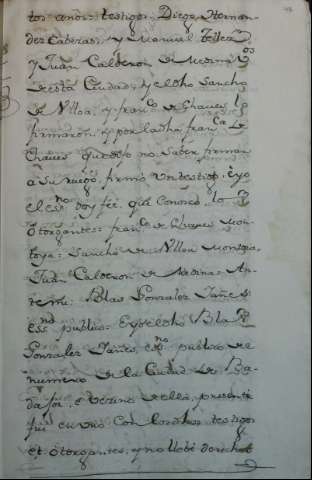 tos años: testigos Diego Hernan
dez Caberas, y Manuel Tellez
y Juan Calderon de Medina Vos
de esta Ciudad, y el dho Sancho
de Vlloa, y franco de Chaues lo
firmaron, y por la dha franca de
Chaues que dijo no saber firmar
a su ruego, firmó Vn testigo, é yo
el essno doy feé, que Conosco, lo
Otorgantes: franco de Chaues Mon
toya: Sancho de Vlloa Montoya.
Juan Calderon de Medina: An
te mi: Blas Gonzalez Jañes
essno publico: E yo el dho Blas
Gonzalez Jañes, essno publico de
numero de la Ciudad de Ba
dajoz, é Vezino de ella, presente
fui en vno Con los dhos testigos
et otorgantes, y no llebé derechos